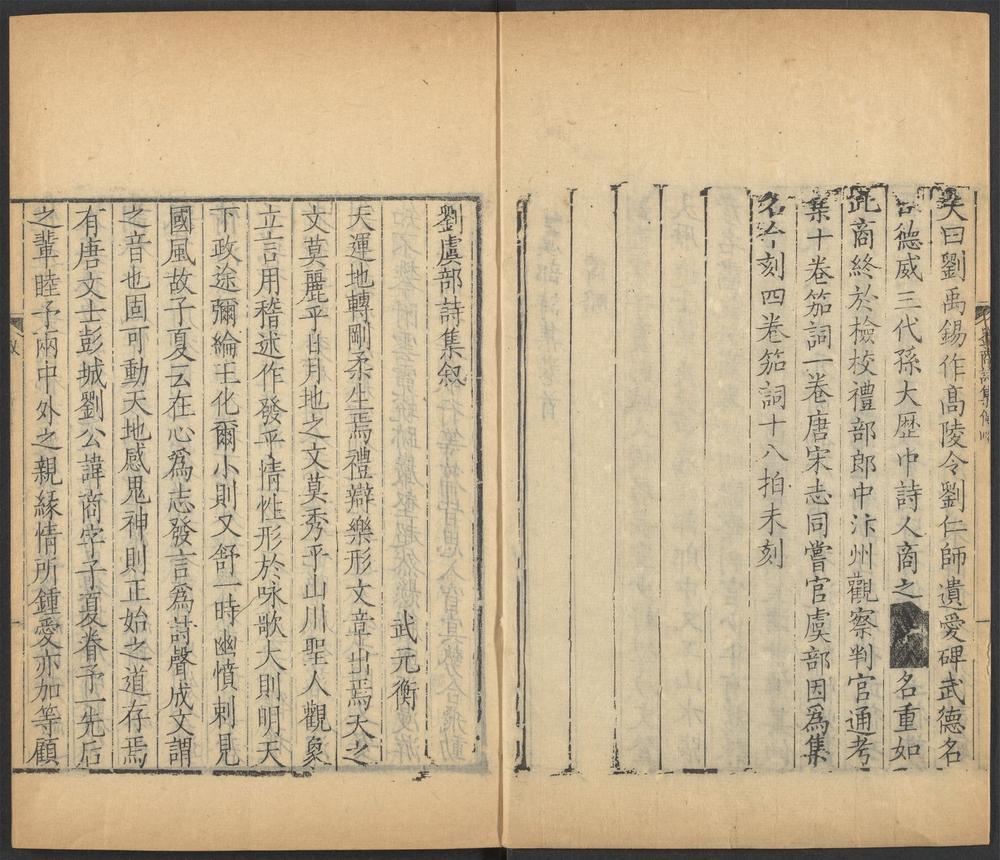 又曰劉禹錫作高陵令劉仁師遺愛碑武德名
臣德威三代孫大歷中詩人商之 名重如
此商終於檢校禮部郎中汴州觀察判官通考
集十卷笳詞一卷唐宋志同嘗官虞部因爲集
名今刻四卷笳詞十八拍未刻
劉虞部詩集叙
武元衡
天運地轉剛柔生焉禮辯樂形文章出焉天之
文莫麗乎日月地之文莫秀乎山川聖人觀象
立言用稽述作發乎情性形於咏歌大則明天
下政途彌綸王化爾小則又舒一時幽憤刺見
國風故子夏云在心爲志發言爲詩聲成文謂
之音也固可動天地感鬼神則正始之道存焉
有唐文士彭城劉公諱商字子夏眷予一先后
之輩睦予兩中外之親緣情所鍾愛亦加等顧